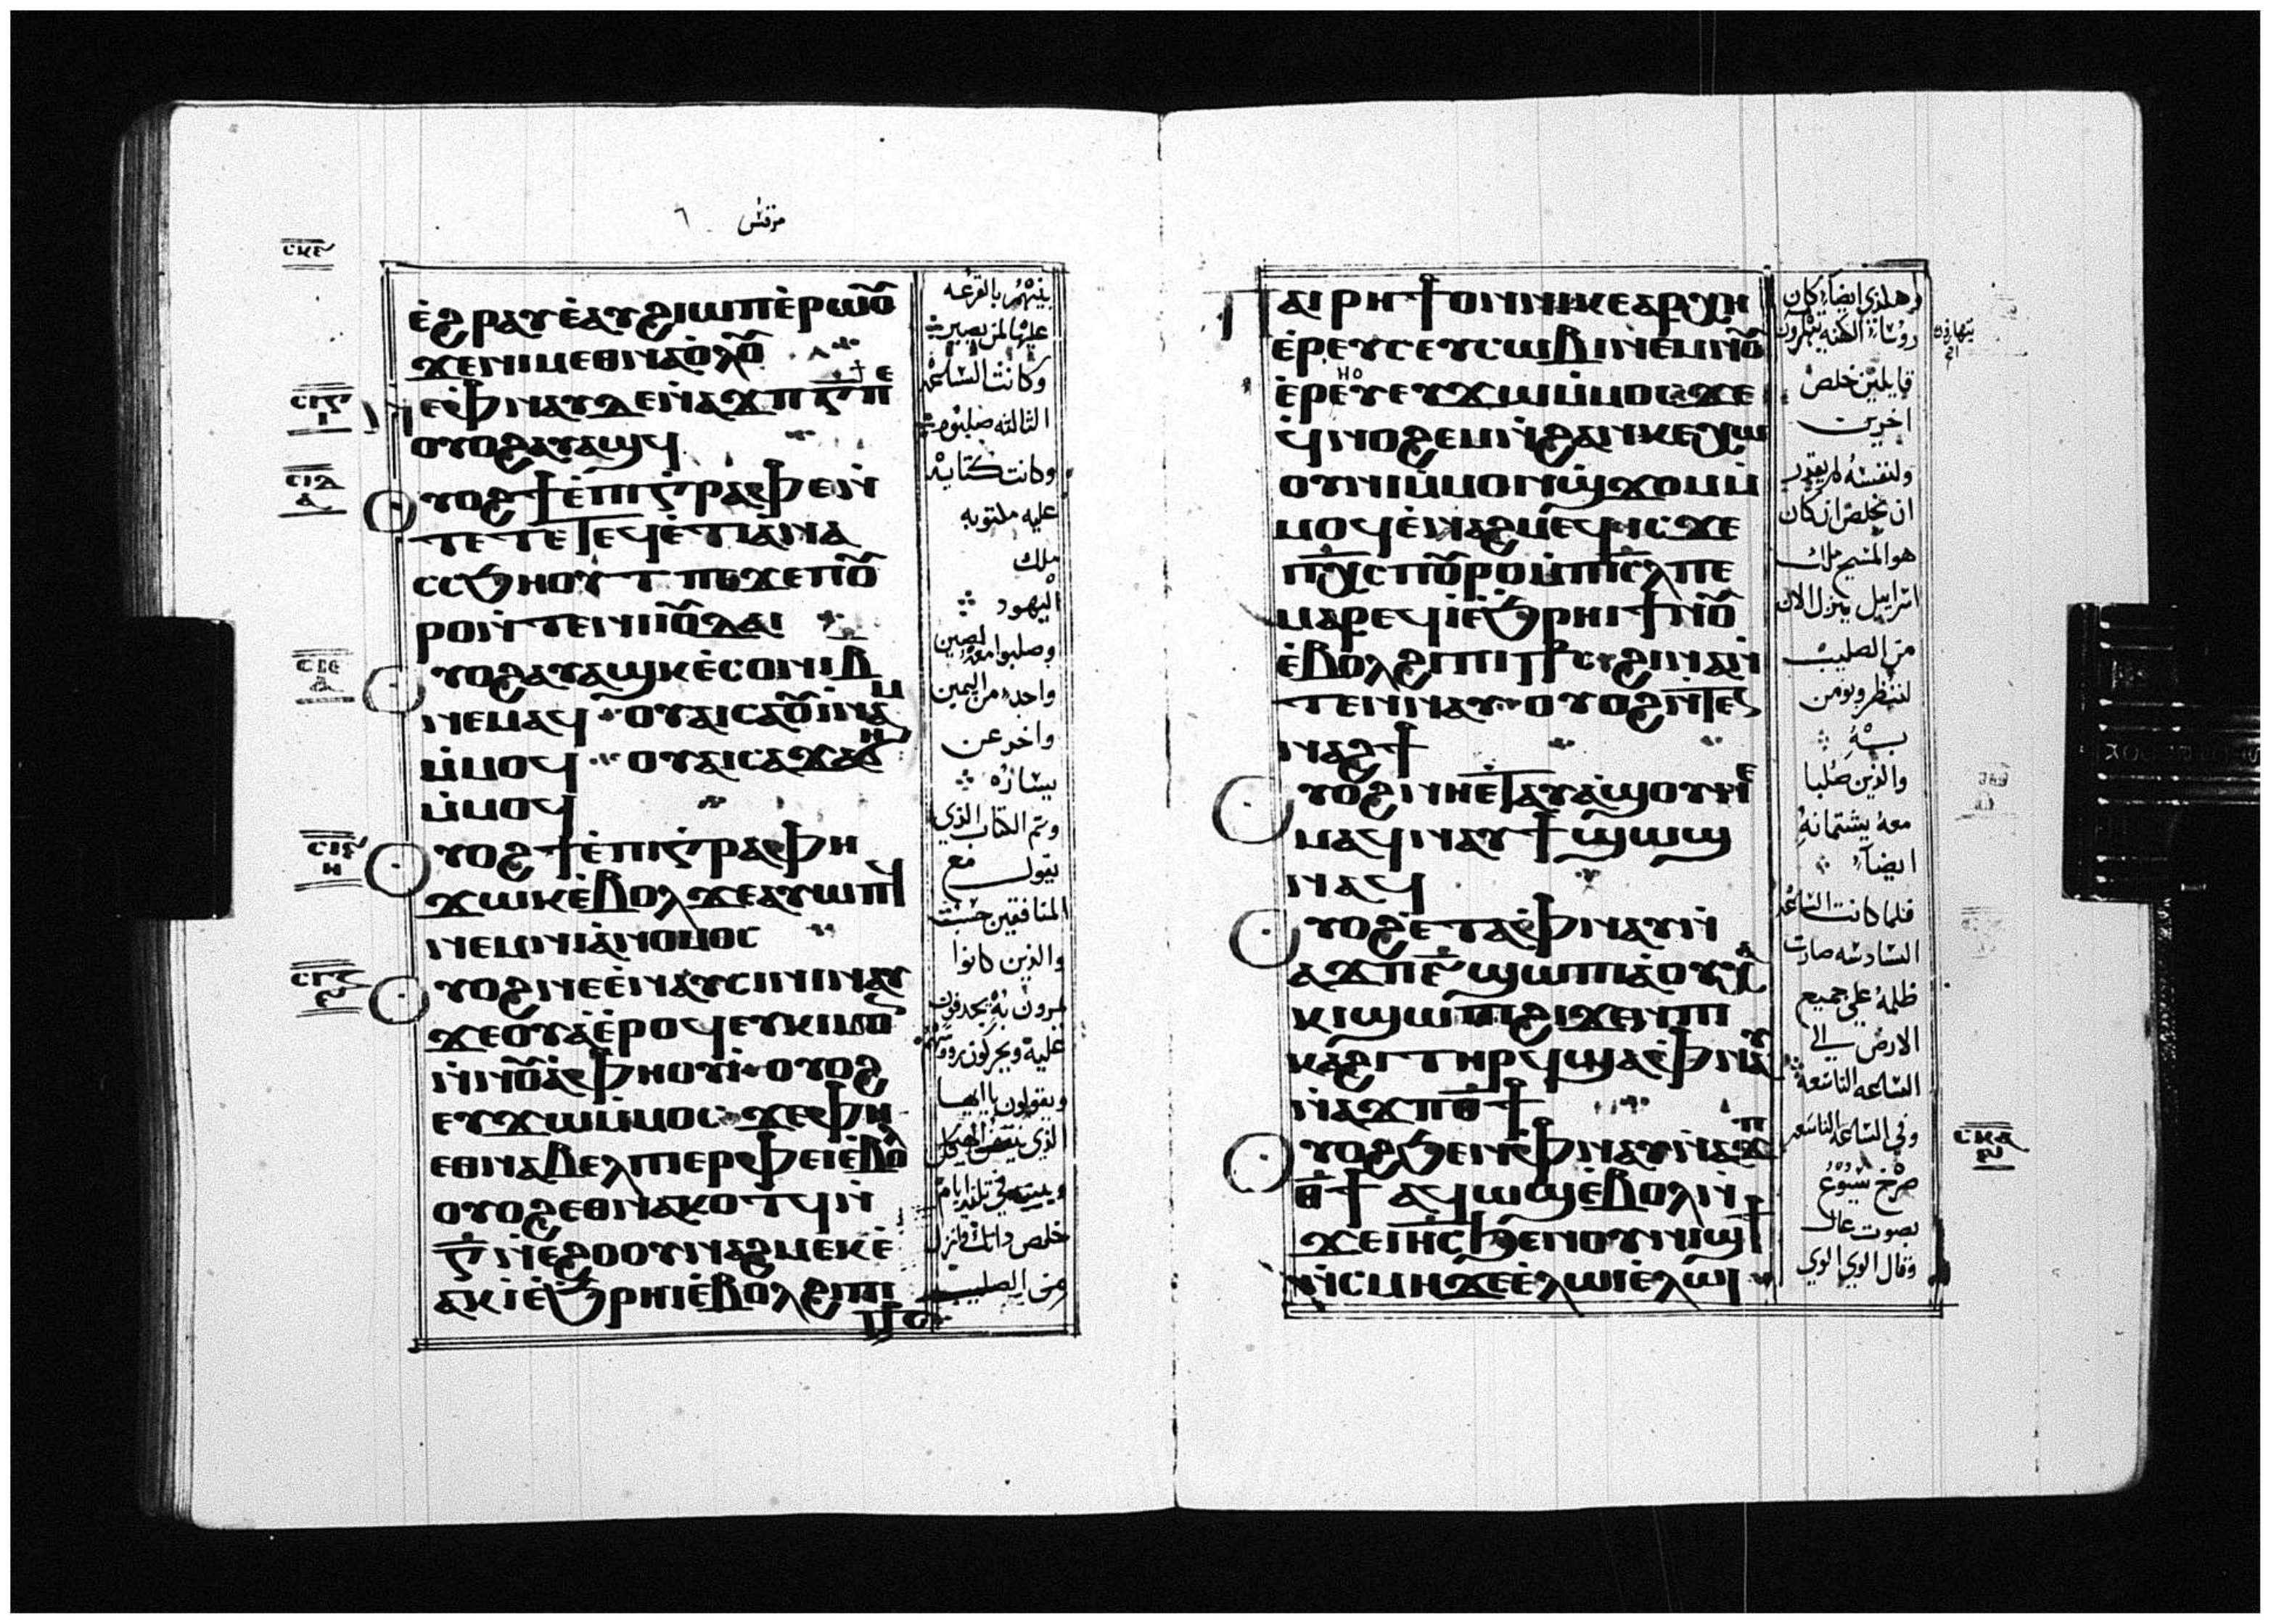 مرقس ٦
ⲥⲕⲉ
ⲉ̀ϩⲣⲁⲩⲉ̀ⲁⲩϩⲓⲱⲡⲉ̀ⲣⲱⲟ̅ⲩ
ϫⲉⲛⲓⲙⲉⲑⲛⲁⲟ̀ⲗⲟ̅ⲩ
ⲛⲉⲫⲛⲁⲩⲇⲉⲛ̀ⲁϫⲡⲅ̅ⲡⲉ
ⲟⲩⲟϩⲁⲩⲁϣϥ
ⲟⲩⲟϩϯⲉ̀ⲡⲓⲅⲣⲁⲫⲏⲉⲛ
ⲧⲉⲧⲉⲧⲉϥⲉ̀ⲧⲓⲁ̀ⲛⲁ
ⲥⲥϧⲏⲟⲩⲧ ⲡⲉϫⲉⲡⲟ̅ⲩ
ⲣⲟⲛ̀ⲧⲉⲛⲓⲓⲟ̅ⲩⲇⲁⲓ
ⲟⲩⲟϩⲁⲩⲁϣⲕⲉ̀ⲥⲟⲛⲓⲃ̅
ⲛⲉⲙⲁϥ ⲟⲩⲁⲓⲥⲁⲟ̅ⲩⲓ̀ⲛⲁⲙ
ⲙ̀ⲙⲟϥ ⲟⲩⲁⲓⲥⲁϫⲁϭⲏ
ⲙ̀ⲙⲟϥ
ⲟⲩⲟϩϯⲉ̀ⲡⲓⲅⲣⲁⲫⲏ
ϫⲱⲕⲉ̀ⲃⲟⲗϫⲉⲁⲩⲱⲡϥ
ⲛⲉⲙⲛⲓⲁ̀ⲛⲟⲙⲟⲥ
ⲟⲩⲟϩⲛⲉⲉ̀ⲛⲁⲩⲥⲓⲛⲓⲛⲁⲩ
ϫⲉⲟⲩⲁⲉ̀ⲣⲟϥⲉⲩⲕⲓⲙ
ⲛ̀ⲛⲟ̅ⲩⲁ̀ⲫⲏⲟⲩⲓ̀ ⲟⲩⲟϩ
ⲉⲩϫⲱⲙ̀ⲙⲟⲥ ϫⲉⲫⲏ
ⲉⲑⲛⲁⲃⲉⲗⲡⲓⲉⲣⲫⲉⲓⲉ̀ⲃⲟⲗ
ⲟⲩⲟϩⲉⲑⲛⲁⲕⲟⲧϥⲛ̀
ⲅ̅ⲛ̀ⲉϩⲟⲟⲩⲛⲁϩⲙⲉⲕⲉ̀
ⲁⲕⲓⲉ̀ϧⲣⲏⲓⲉ̀ⲃⲟⲗϩⲓⲡⲓ
بينهم بالقرعه
عليها لمن يصير
وكانت الساعه
الثالثه صلبوه
وكانت كتابة
عليه مكتوبه
ملك
اليهود
وصلبوا معه لصين
واحد من اليمين
واخر عن
يساره
وتم الكتاب الذي
يقول مع
المنافقين حسب
والذين كانوا
يمرون به يجدفون
عليه ويحركون رووسهم
ويقولون يا ايها
الذي ينقض الهيكل
ويبنيه في ثلثة ايام
خلص ذاتك وانزل
من الصليب
ⲡⲁⲓⲣⲏϯⲟⲛⲛⲓⲕⲉⲁⲣⲭⲏ
ⲉ̀ⲣⲉⲩⲥⲉⲩⲥⲱⲃⲓⲛⲉⲙⲛⲟ̅ⲩ
ⲉ̀ⲣⲉⲩⲉⲩϫⲱⲙ̀ⲙⲟⲥϫⲉ
ϥⲛⲟϩⲉⲙⲛ̀ϩⲁⲛⲕⲉⲭⲱ
ⲟⲩⲛⲓⲙ̀ⲙⲟⲛϣϫⲟⲙⲙ̀
ⲙⲟϥⲉ̀ⲛⲁϩⲙⲉϥ ⲓⲥϫⲉ
ⲡⲭ̅ⲥⲡⲟ̅ⲩⲣⲟⲙ̀ⲡⲓⲥ̅ⲗⲡⲉ
ⲙⲁⲣⲉϥⲓⲉ̀ϧⲣⲏⲓϯⲛⲟ̅ⲩ
ⲉ̀ⲃⲟⲗϩⲓⲡⲓⲥⲧⲥ ϩⲓⲛⲁⲛ̀
ⲧⲉⲛⲛⲁⲩ ⲟⲩⲟϩⲛ̀ⲧⲉⲛ
ⲛⲁϩϯ
ⲟⲩⲟϩⲛⲏⲉⲧⲁⲩⲁϣⲟⲩⲛⲉ
ⲙⲁϥⲛⲁⲩϯϣⲱϣ
ⲛⲁϥ
ⲟⲩⲟϩⲉ̀ⲧⲁⲫⲛⲁⲩⲛ̀
ⲁϫⲡⲋ̅ϣⲱⲡⲓⲁ̀ⲟⲩⲭⲁ
ⲕⲓϣⲱⲡⲓϩⲓϫⲉⲛⲡⲓ
ⲕⲁϩⲓⲧⲏⲣϥϣⲁⲫⲛⲁⲩ
ⲛ̀ⲁϫⲡⲑ̅ϯ
ⲟⲩⲟϩϧⲉⲛⲫⲛⲁⲩⲛ̀ⲁϫⲡ
ⲑ̅ϯ ⲁϥⲱϣⲉ̀ⲃⲟⲗⲛ̀
ϫⲉⲓⲏ̅ⲥϧⲉⲛⲟⲩⲛⲓϣϯ
ⲛ̀ⲥⲙⲏϫⲉⲉ̀ⲗⲱⲓⲉ̀ⲗⲱⲓ
وهكذي ايضا كان
روساء الكهنه يتهزون
قايلين خلص
اخرين
ولنفسه لم يقدر
ان يخلص ان كان
هو المسيح ملك
اسراييل ينزل الان
من الصليب
لننظر ونومن
به
والذين صلبا
معه يشتمانه
ايضا
فلما كانت الساعه
السادسه صارت
ظلمه علي جميع
الارض الي
الساعه التاسعه
وفي الساعه التاسعه
صرخ يسوع
بصوت عال
وقال الوي الوي
ⲥⲕⲁ